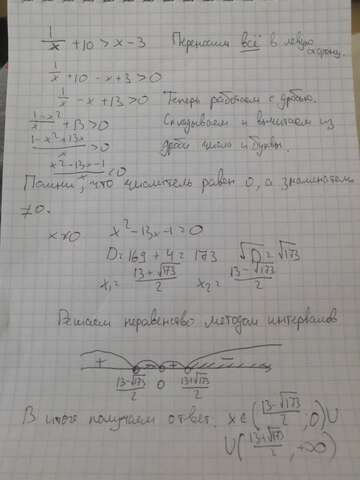 1/x + 10 > x - 3 Переносим всё в левую сторону.
1/x + 10 - x + 3 > 0
1/x - x + 13 > 0 Теперь работаем с дробью.
(1-x²)/x + 13 > 0 Складываем и вычитаем из
(1-x²+13x)/x > 0 дроби число и буквы.
(x²-13x-1)/x < 0
Помни, что числитель равен 0, а знаменатель
≠0.
x≠0 x²-13x-1=0
D=169+4=173 √D=√173
x₁=(13+√173)/2 x₂=(13-√173)/2
Решаем неравенство методом интервалов
+ - + -
(13-√173)/2 0 (13+√173)/2
В итоге получаем ответ: x∈((13-√173)/2; 0)∪
∪((13+√173)/2; +∞)